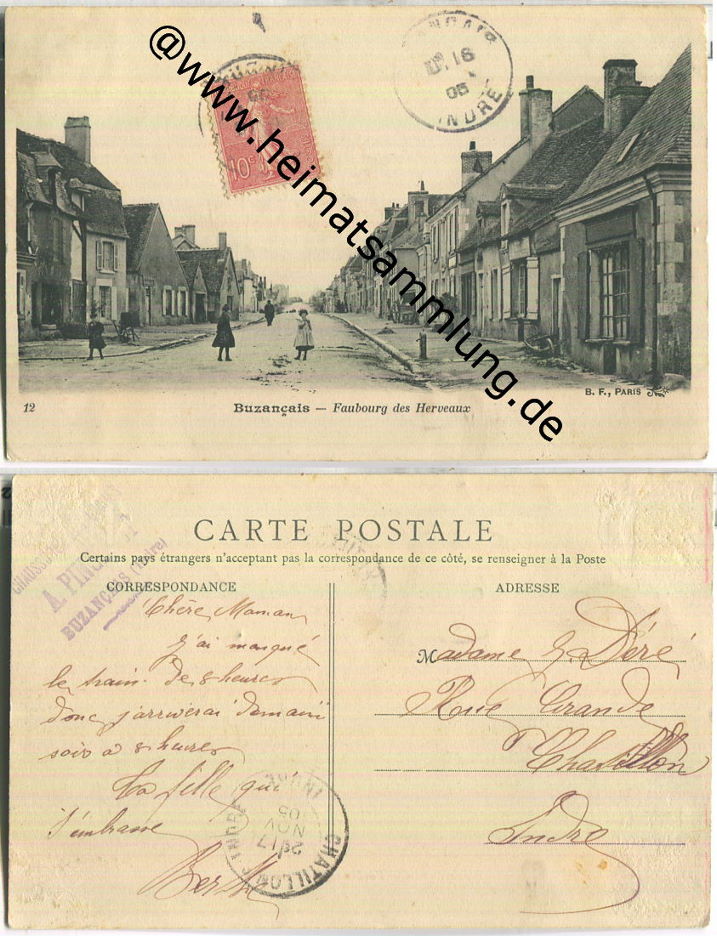 @www.heimatsammlung.de
10c
16
05
INDRE
12
Buzançais — Faubourg des Herveaux
B. F., PARIS
CARTE POSTALE
Certains pays étrangers n'acceptant pas la correspondance de ce côté, se renseigner à la Poste
CORRESPONDANCE
ADRESSE
A. PIN
BUZANÇAIS (Indre)
Chère Maman
j'ai manqué
le train de 8 heures
donc j'arriverai demain
soir a 8 heures
Ta fille qui
t'embrasse
Berthe
Madame Déré
Rue Grande
Chatillon
Indre
CHATILLON
INDRE
2e 17
NOV
05